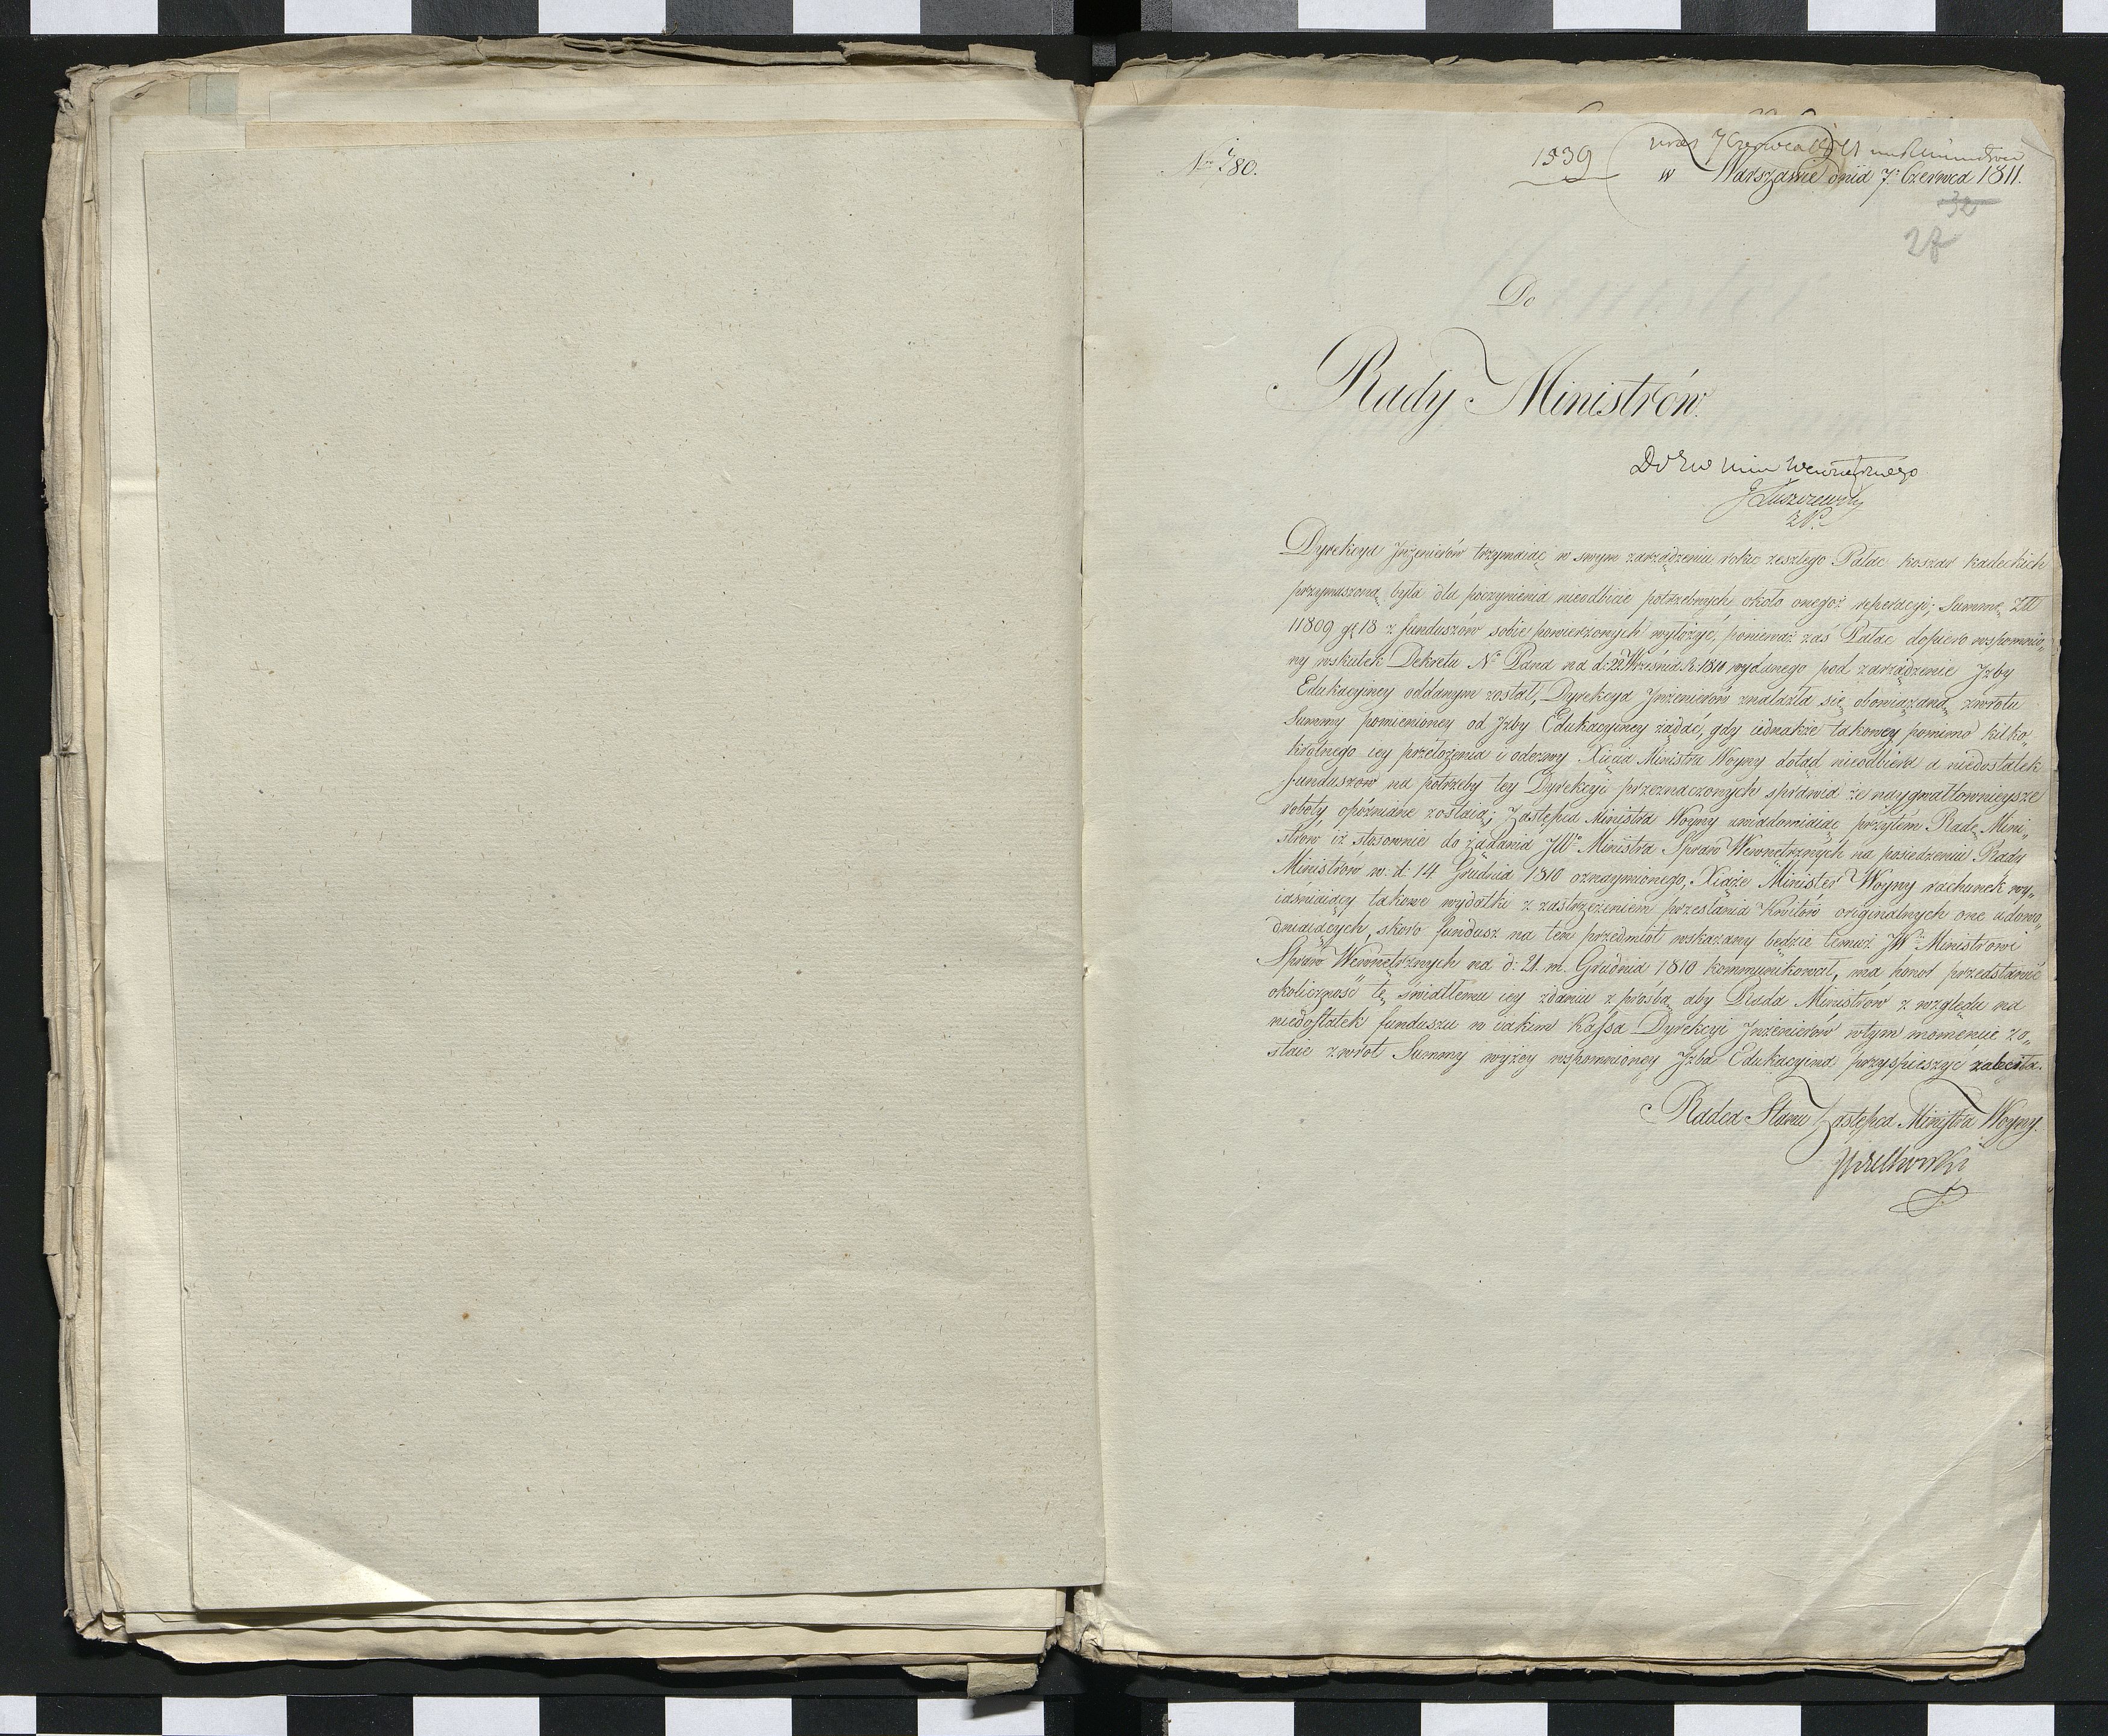 Nro 780.
1539
w Warszawie dnia 7. Czerwca 1811.
32
28
Do
Rady Ministrów.
Do Min Wewnętrznego
Łuszczewski
Dyrekcya Jnżenierów trzymaiąc w swym zarządzeniu roku zeszłego Pałac koszar kadeckich
przymuszoną była dla poczynienia nieodbicie potrzebnych około onegoż reperacyi; Summę Złł
11809 gr 18 z funduszów sobie powierzonych wyłożyć, ponieważ zaś Pałac dopiero wspomnio„
ny wskutek Dekretu No Pana na d: 22 Września R: 1810 wydanego pod zarządzenie Jzby
Edukacyiney oddanym został, Dyrekcya Jnżenierów znalazła się obowiązaną zwrotu
Summy pomienioney od Jzby Edukacyiney żądać, gdy iednakże takowey pomimo kilko„
krotnego iey przełożenia i odezwy Xięcia Ministra Woyny dotąd nieodbiera a niedostatek
funduszów na potrzeby tey Dyrekcyi przeznaczonych sprawia że naygwałtownieysze
roboty opóźniane zostaią; Zastępca Ministra Woyny uwiadomiaiąc przytem Radę Mini„
strów iż stosownie do żądania JWo Ministra Spraw Wewnętrznych na posiedzeniu Rady
Ministrów w: d: 14 Grudnia 1810 oznaymionego, Xiąże Minister Woyny rachunek wy„
iaśniaiący takowe wydatki z zastrzeżeniem przesłania Kwitów originalnych one udowo„
dniaiących, skoro fundusz na ten przedmiot wskazany będzie temuż JW Ministrowi
Spraw Wewnętrznych na d: 21. m. Grudnia 1810 kommunikował, ma honor przedstawić
okoliczność tę światłemu iey zdaniu z prośbą aby Rada Ministrów z względu na
niedostatek funduszu w iakim Kassa Dyrekcyi Jnżenierów wtym momencie zo„
staie zwrot Summy wyżey wspomnioney Jzbie Edukacyiney przyspieszyć zaleciła.
Radca Stanu Zastępca Ministra Woyny.
Wielhorski